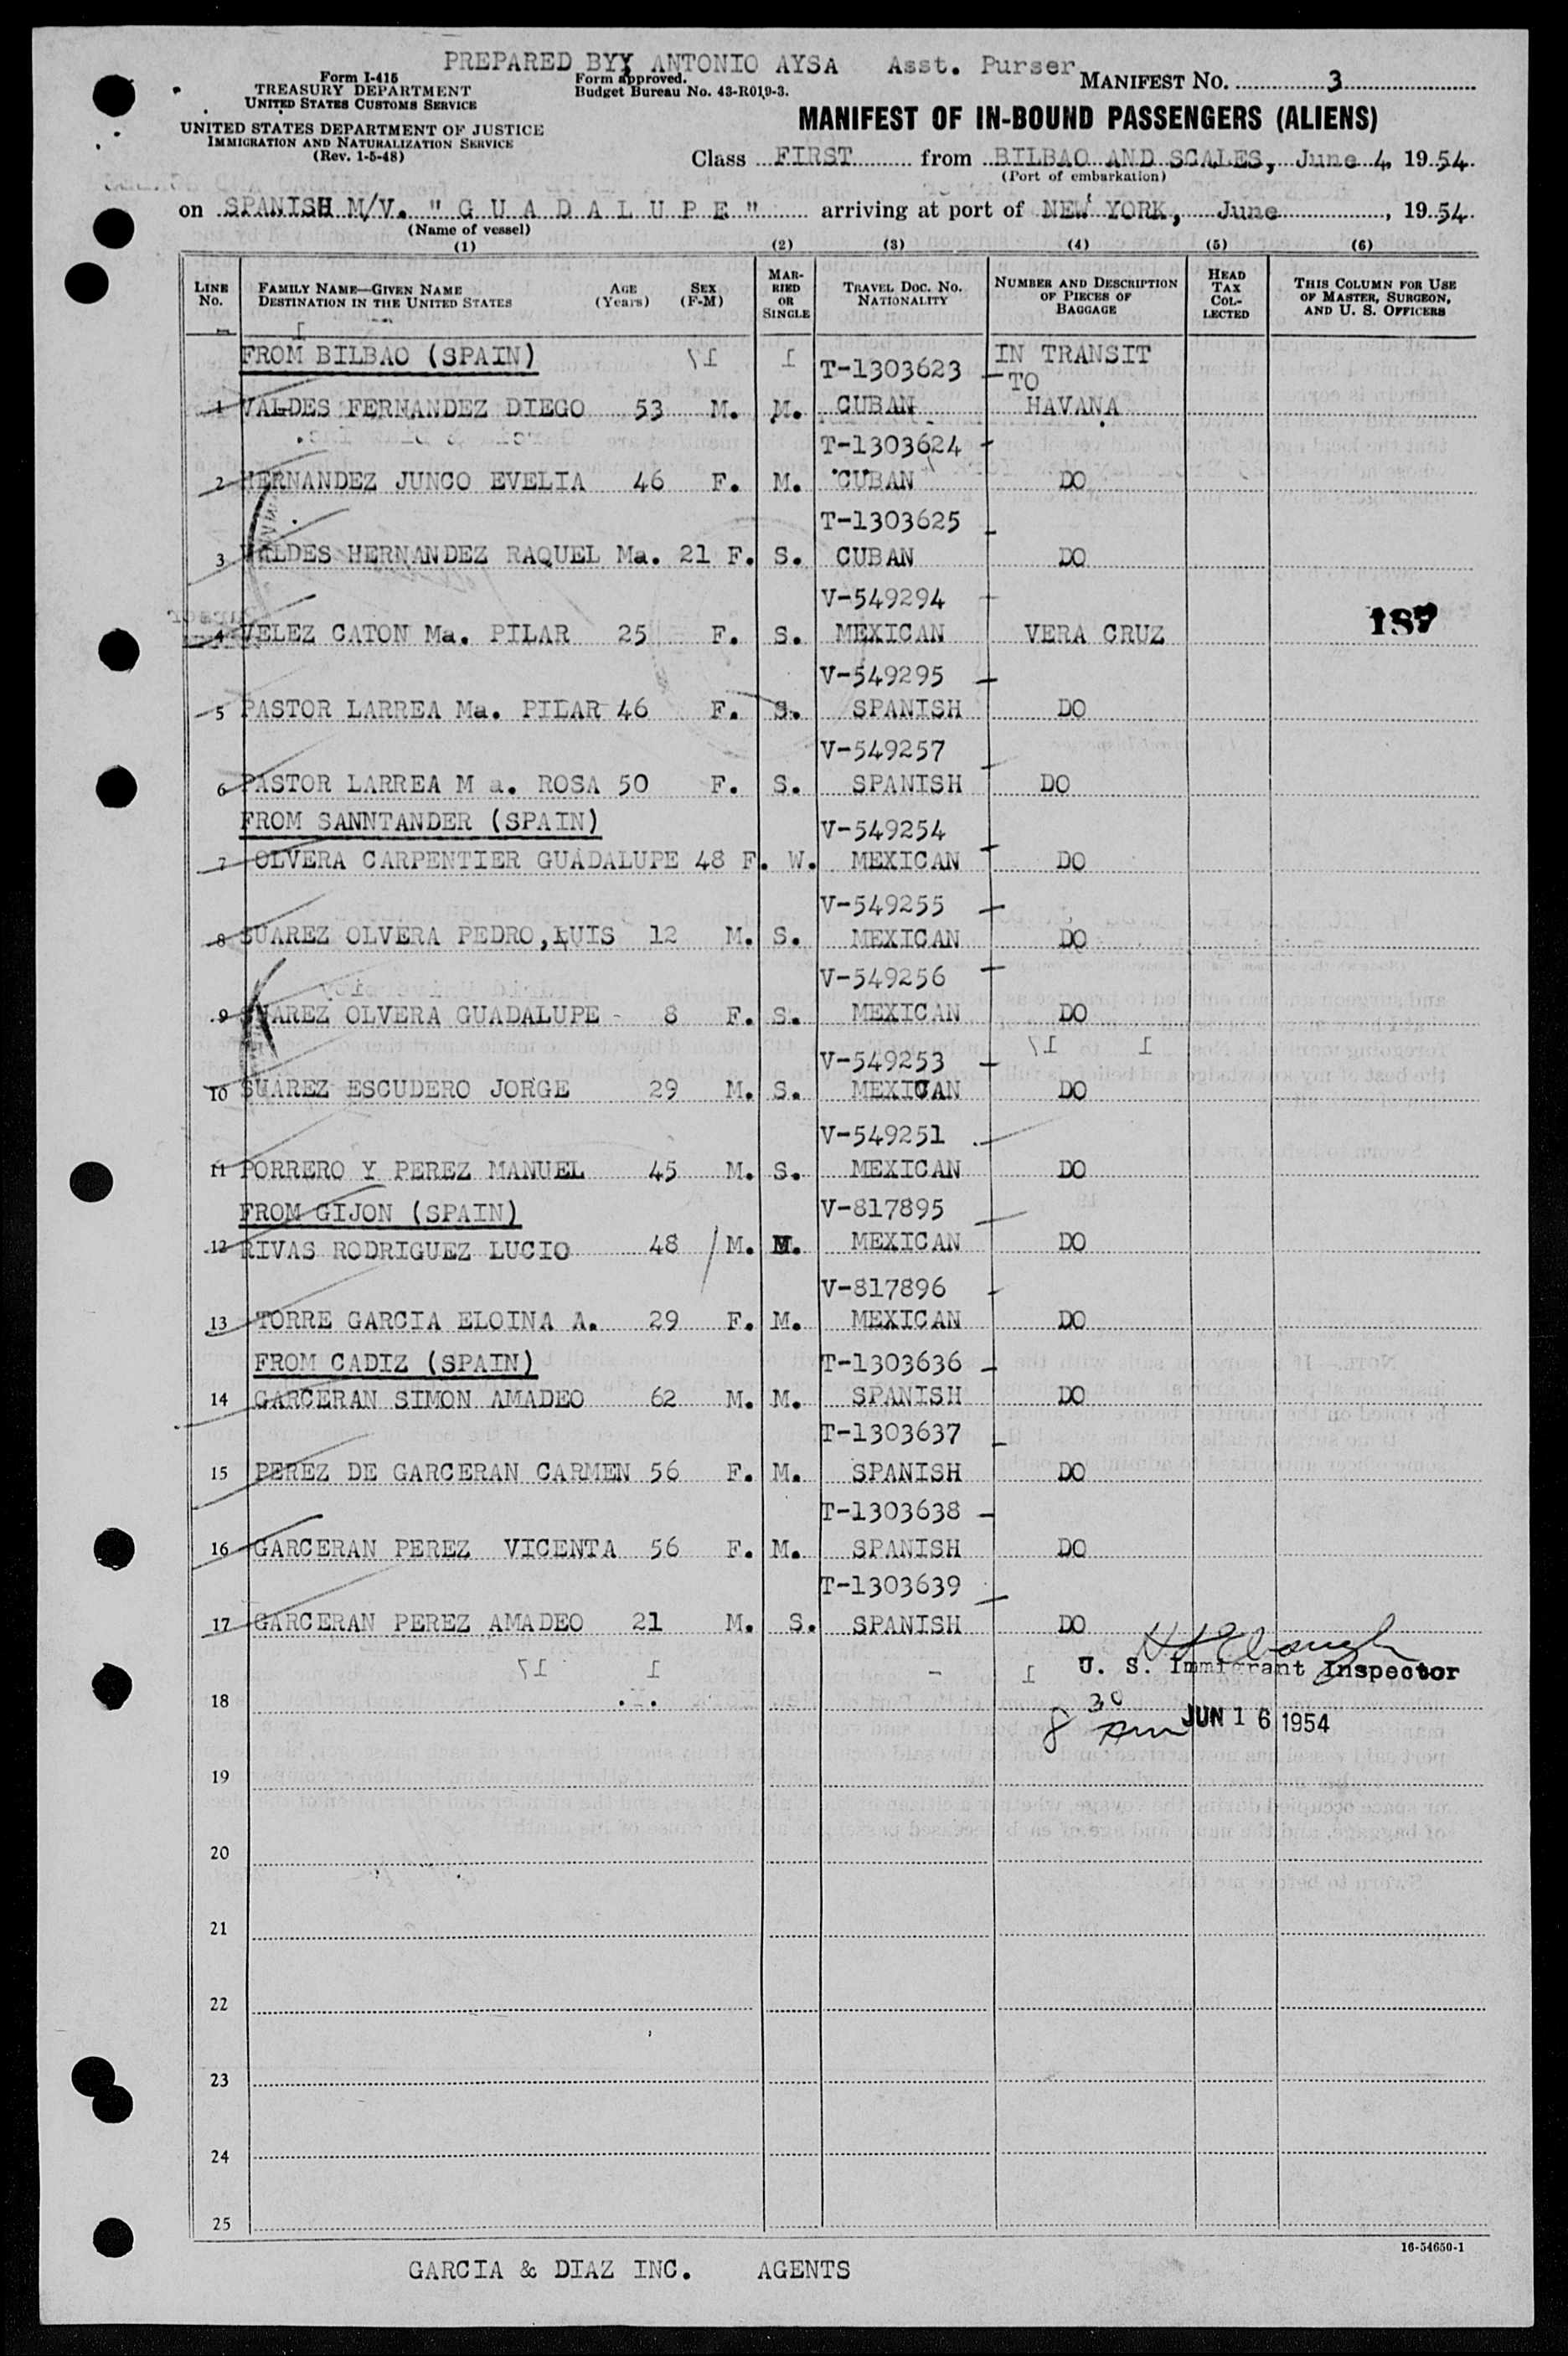 PREPARED BYY ANTONIO AYSA Asst. Purser
Form I-415
TREASURY DEPARTMENT
UNITED STATES CUSTOMS SERVICE
UNITED STATES DEPARTMENT OF JUSTICE
IMMIGRATION AND NATURALIZATION SERVICE
(Rev. 1-5-48)
Form approved.
Budget Bureau No. 43-R019-3.
MANIFEST NO. 3
MANIFEST OF IN-BOUND PASSENGERS (ALIENS)
Class FIRST from BILBAO AND SCALES, June 4, 1954
(Port of embarkation)
on SPANISH M/V. "G U A D A L U P E" arriving at port of NEW YORK, June , 1954
(Name of vessel)
(1) (2) (3) (4) (5) (6)
LINE NO.
FAMILY NAME—GIVEN NAME
DESTINATION IN THE UNITED STATES
AGE (Years)
SEX (F-M)
MARRIED OR SINGLE
TRAVEL DOC. NO.
NATIONALITY
NUMBER AND DESCRIPTION OF PIECES OF BAGGAGE
HEAD TAX COLLECTED
THIS COLUMN FOR USE OF MASTER, SURGEON, AND U. S. OFFICERS
FROM BILBAO (SPAIN) T-1303623 IN TRANSIT TO
1 VALDES FERNANDEZ DIEGO 53 M. M. CUBAN HAVANA
T-1303624
2 HERNANDEZ JUNCO EVELIA 46 F. M. CUBAN DO
T-1303625
3 VALDES HERNANDEZ RAQUEL Ma. 21 F. S. CUBAN DO
V-549294
4 VELEZ CATON Ma. PILAR 25 F. S. MEXICAN VERA CRUZ 187
V-549295
5 PASTOR LARREA Ma. PILAR 46 F. S. SPANISH DO
V-549257
6 PASTOR LARREA M a. ROSA 50 F. S. SPANISH DO
FROM SANNTANDER (SPAIN) V-549254
7 OLVERA CARPENTIER GUADALUPE 48 F. W. MEXICAN DO
V-549255
8 SUAREZ OLVERA PEDRO,LUIS 12 M. S. MEXICAN DO
V-549256
9 SUAREZ OLVERA GUADALUPE - 8 F. S. MEXICAN DO
V-549253
10 SUAREZ ESCUDERO JORGE 29 M. S. MEXICAN DO
V-549251
11 PORRERO Y PEREZ MANUEL 45 M. S. MEXICAN DO
FROM GIJON (SPAIN) V-817895
12 RIVAS RODRIGUEZ LUCIO 48 M. M. MEXICAN DO
V-817896
13 TORRE GARCIA ELOINA A. 29 F. M. MEXICAN DO
FROM CADIZ (SPAIN) T-1303636
14 GARCERAN SIMON AMADEO 62 M. M. SPANISH DO
T-1303637
15 PEREZ DE GARCERAN CARMEN 56 F. M. SPANISH DO
T-1303638
16 GARCERAN PEREZ VICENTA 56 F. M. SPANISH DO
T-1303639
17 GARCERAN PEREZ AMADEO 21 M. S. SPANISH DO
U. S. Immigrant Inspector
18
8 30 Am JUN 16 1954
19
20
21
22
23
24
25
16-54650-1
GARCIA & DIAZ INC. AGENTS